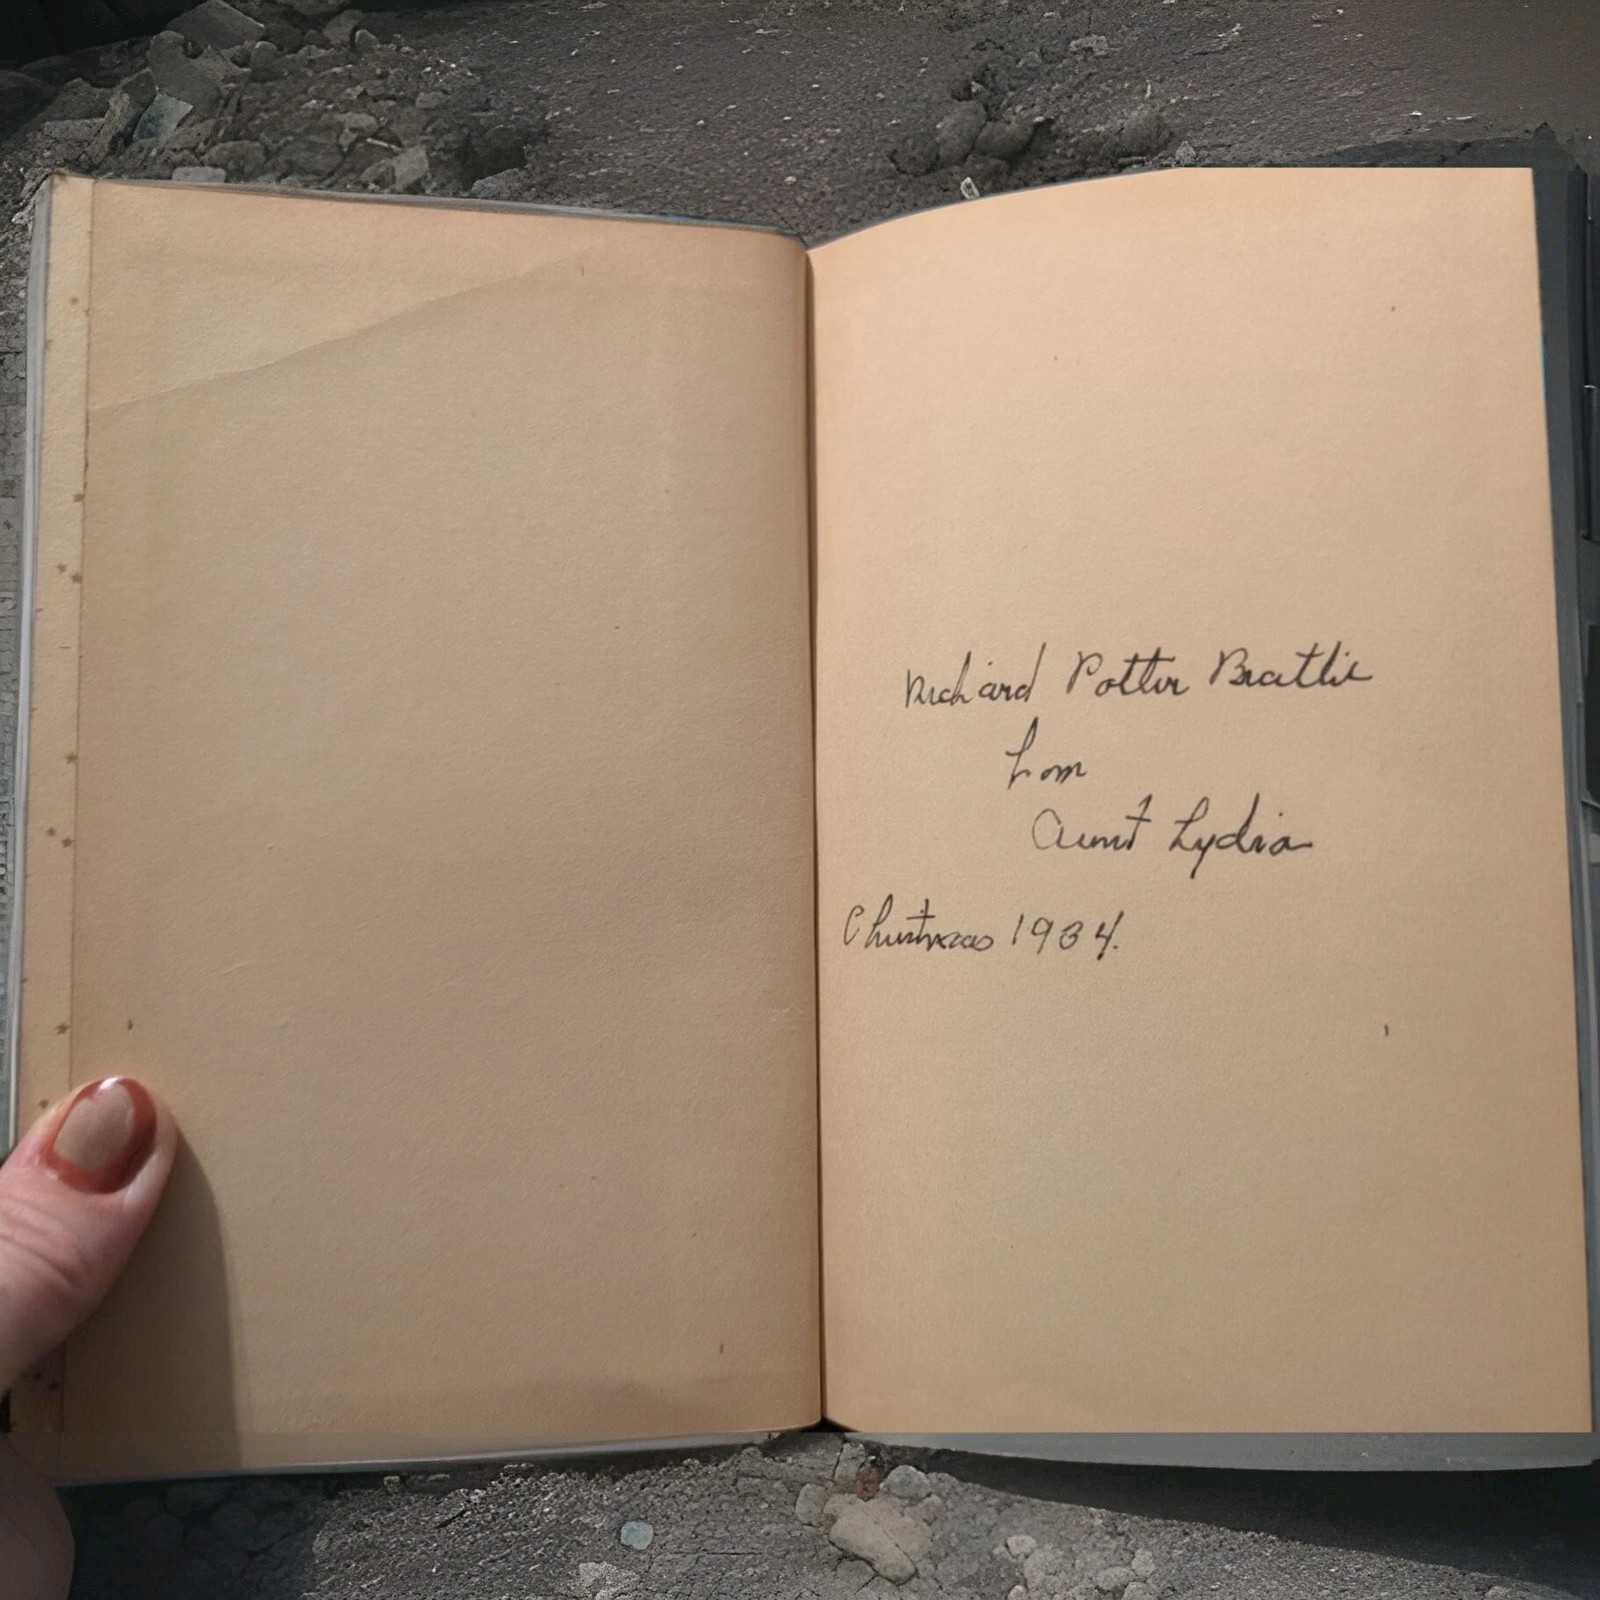 Richard Potter Beattie
from
Aunt Lydia
Christmas 1934.